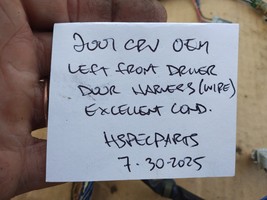 2007 CRV OEM
LEFT FRONT DRIVER
DOOR HARNERS (WIRE)
EXCELLENT COND.
HSPECPARTS
7-30-2025